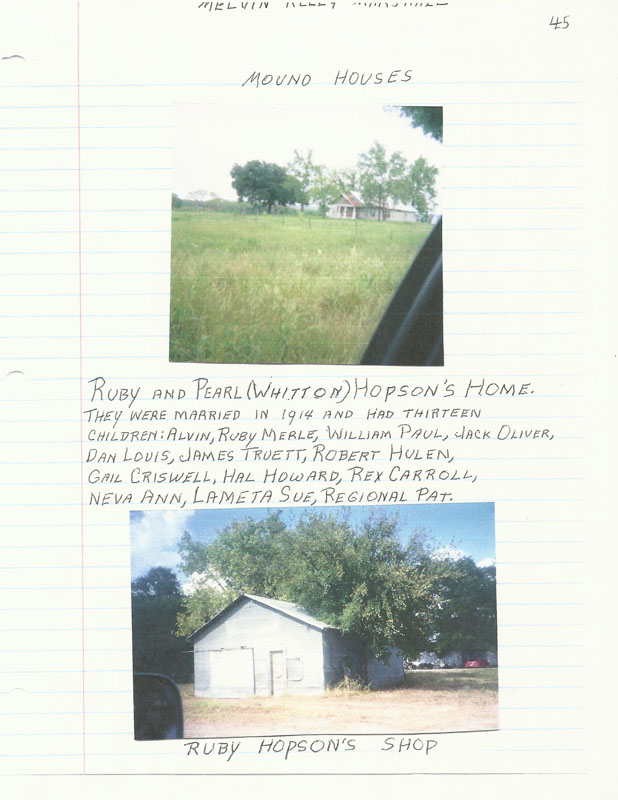 MELVIN KELLY MARSHALL
45
MOUND HOUSES
RUBY AND PEARL (WHITTON) HOPSON'S HOME.
THEY WERE MARRIED IN 1914 AND HAD THIRTEEN
CHILDREN: ALVIN, RUBY MERLE, WILLIAM PAUL, JACK OLIVER,
DAN LOUIS, JAMES TRUETT, ROBERT HULEN,
GAIL CRISWELL, HAL HOWARD, REX CARROLL,
NEVA ANN, LAMETA SUE, REGIONAL PAT.
RUBY HOPSON'S SHOP